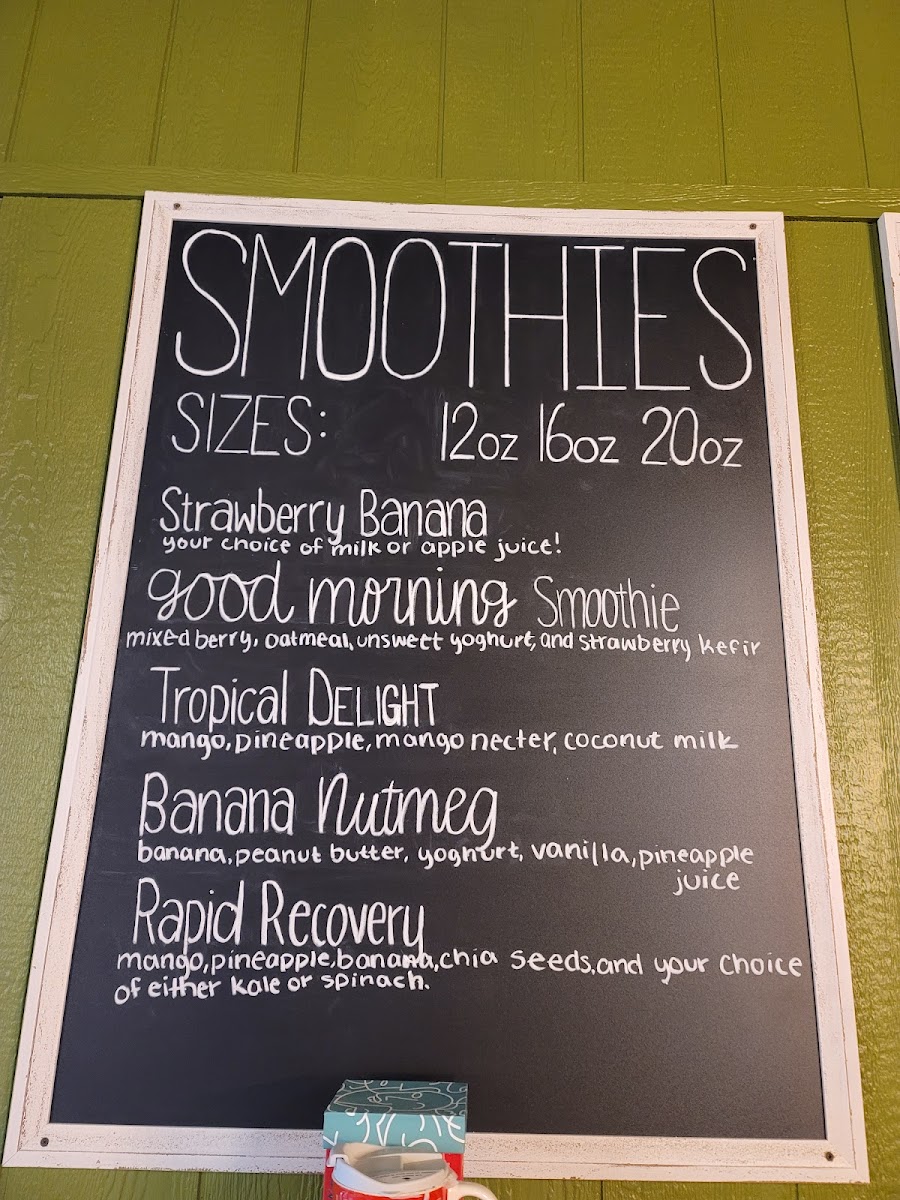 SMOOTHIES
SIZES: 12oz 16oz 20oz
Strawberry Banana
your choice of milk or apple juice!
good morning Smoothie
mixed berry, oatmeal, unsweet yoghurt, and strawberry kefir
Tropical DELIGHT
mango, pineapple, mango necter, coconut milk
Banana Nutmeg
banana, peanut butter, yoghurt, vanilla, pineapple
juice
Rapid Recovery
mango, pineapple, banana, chia seeds, and your choice
of either kale or spinach.